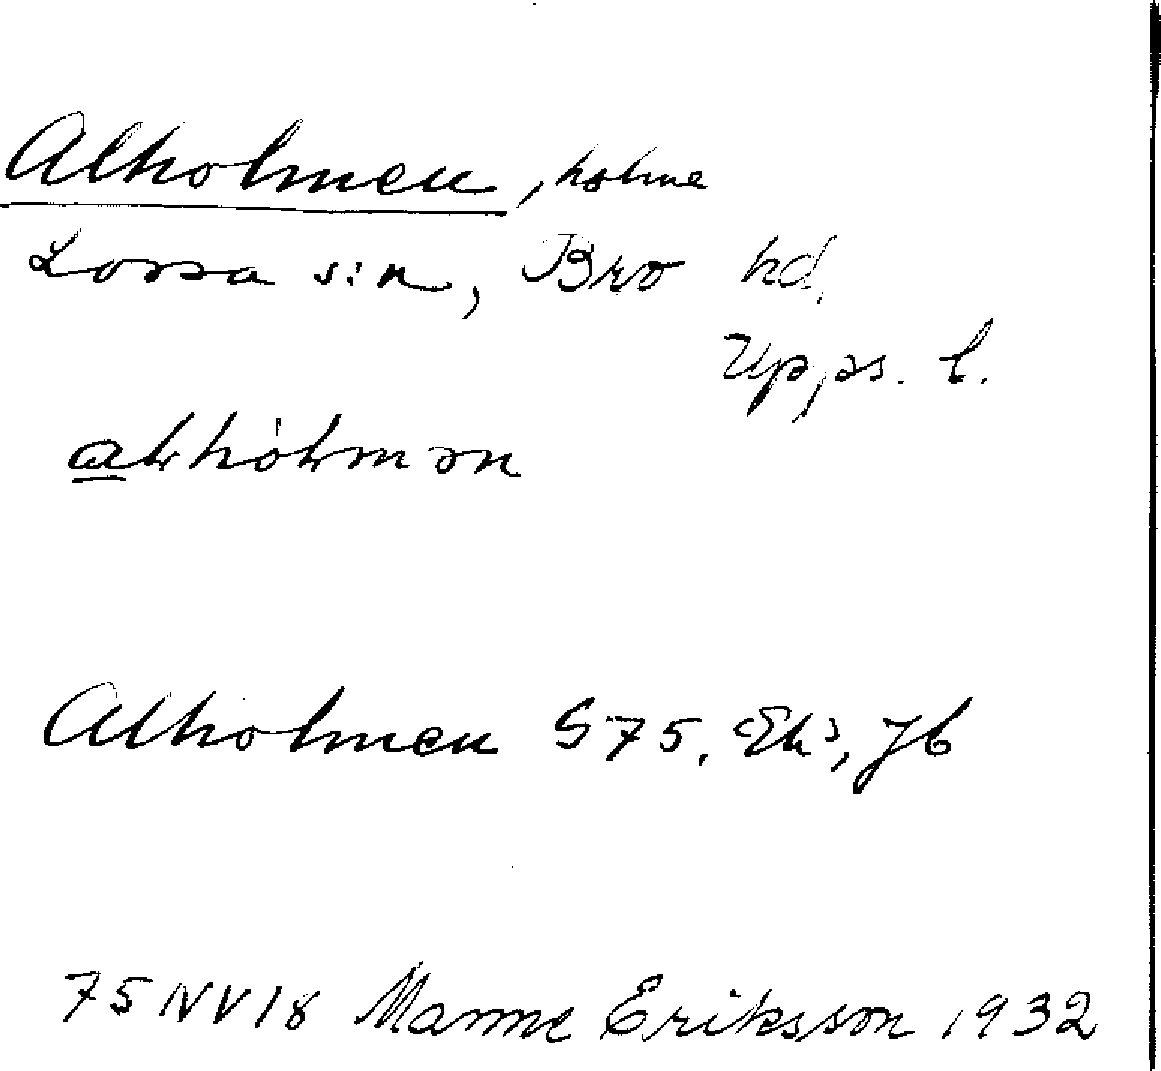 Alholmen, holme
Lossa s:n, Bro hd,
Upps. l.
Alholmen G75, Ek, Jb
75 NV 18 Manne Eriksson 1932